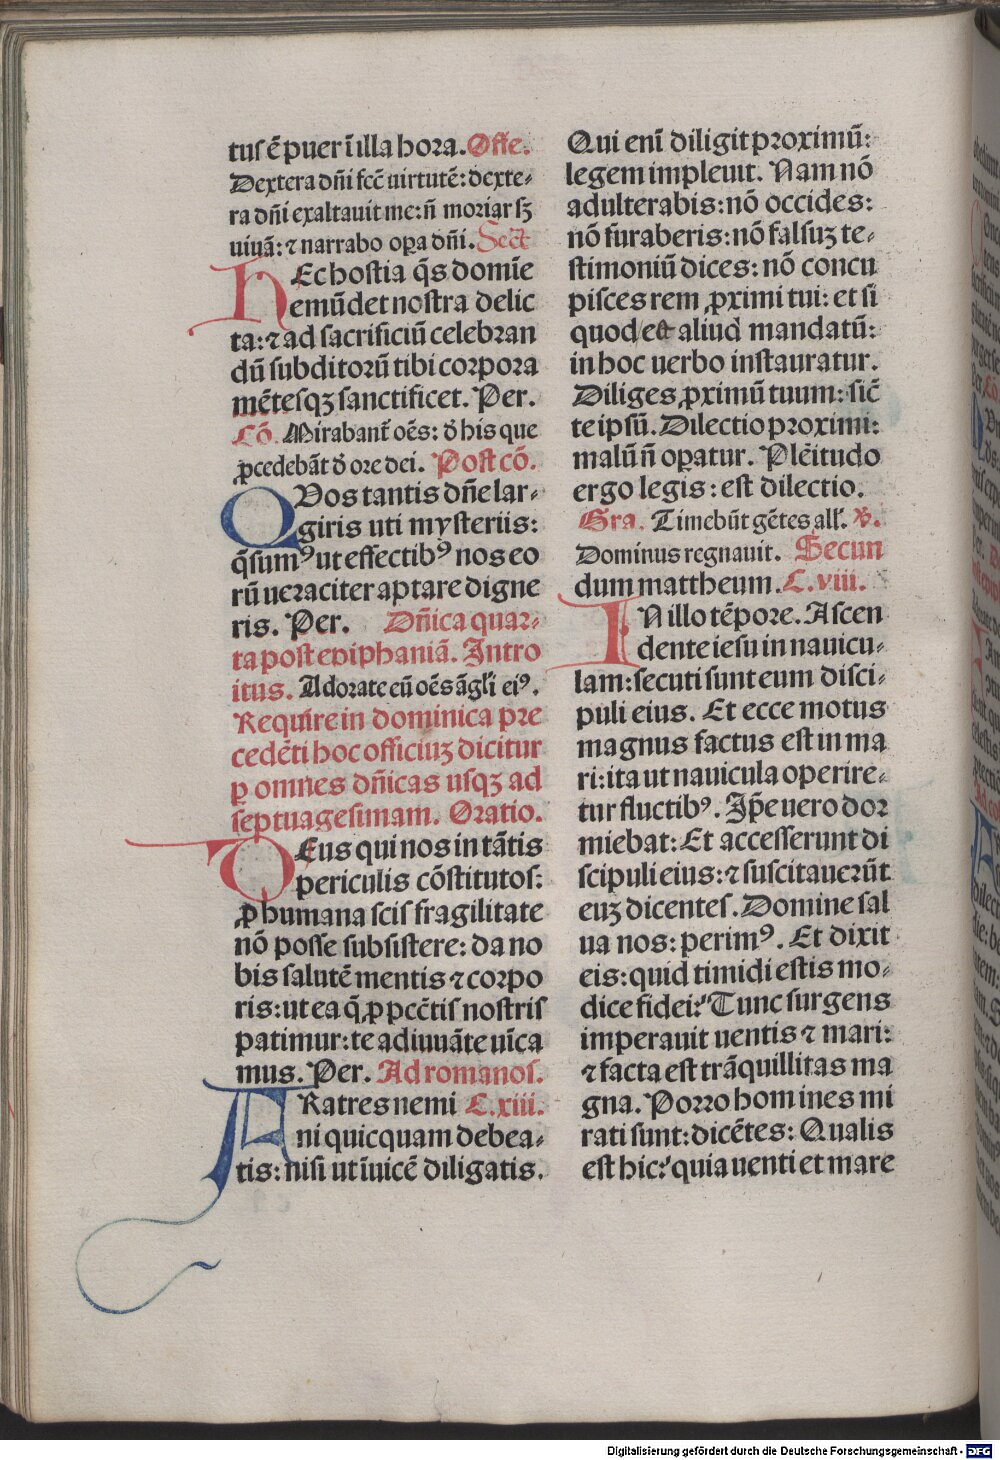 tus ē puer ī illa hora. Offe.
Dextera dñi fec̄ uirtutē: dexte-
ra dñi exaltauit me: ñ moriar sꝫ
uiuā: ⁊ narrabo oꝑa dñi. Sect̄
HEc hostia q̄s domīe
emūdet nostra delic
ta: ⁊ ad sacrificiū celebran
dū subditorū tibi corpora
mētesqꝫ sanctificet. Per.
Cō. Mirabant̄ oēs: đ his que
ꝓcedebāt đ ore dei. Post cō.
QUos tantis dñe lar-
giris uti mysteriis:
q̄sumꝰ ut effectibꝰ nos eo
rū ueraciter aptare digne
ris. Per. Dñica quar-
ta post epiphaniā. Intro
itus. Adorate eū oēs āgl̄i eiꝰ.
Require in dominica pre
cedēti hoc officiuꝫ dicitur
ꝑ omnes dñicas usqꝫ ad
septuagesimam. Oratio.
DEus qui nos in tātis
periculis cōstitutos:
ꝓ humana scis fragilitate
nō posse subsistere: da no
bis salutē mentis ⁊ corpo
ris: ut ea q̄ ꝓ pcc̄tis nostris
patimur: te adiuuāte uīca
mus. Per. Ad romanos.
FRatres nemi C. xiii.
ni quicquam debea-
tis: nisi ut īuicē diligatis.
Qui enī diligit proximū:
legem impleuit. Nam nō
adulterabis: nō occides:
nō furaberis: nō falsuꝫ te-
stimoniū dices: nō concu
pisces rem ꝓximi tui: et si
quod est aliud mandatū:
in hoc uerbo instauratur.
Diliges ꝓximū tuum: sic̄
te ipsū. Dilectio proximi:
malū ñ oꝑatur. Plēitudo
ergo legis: est dilectio.
Gra. Timebūt gētes all'. V̄.
Dominus regnauit. Secun
dum mattheum. C. viii.
IN illo tēpore. Ascen
dente iesu in nauicu-
lam: secuti sunt eum disci-
puli eius. Et ecce motus
magnus factus est in ma
ri: ita ut nauicula operire-
tur fluctibꝰ. Ip̄e uero dor
miebat: Et accesserunt di
scipuli eius: ⁊ suscitauerūt
euꝫ dicentes. Domine sal
ua nos: perimꝰ. Et dixit
eis: quid timidi estis mo-
dice fidei? Tunc surgens
imperauit uentis ⁊ mari:
⁊ facta est trāquillitas ma
gna. Porro homines mi
rati sunt: dicētes: Qualis
est hic? quia uenti et mare
Digitalisierung gefördert durch die Deutsche Forschungsgemeinschaft - DFG